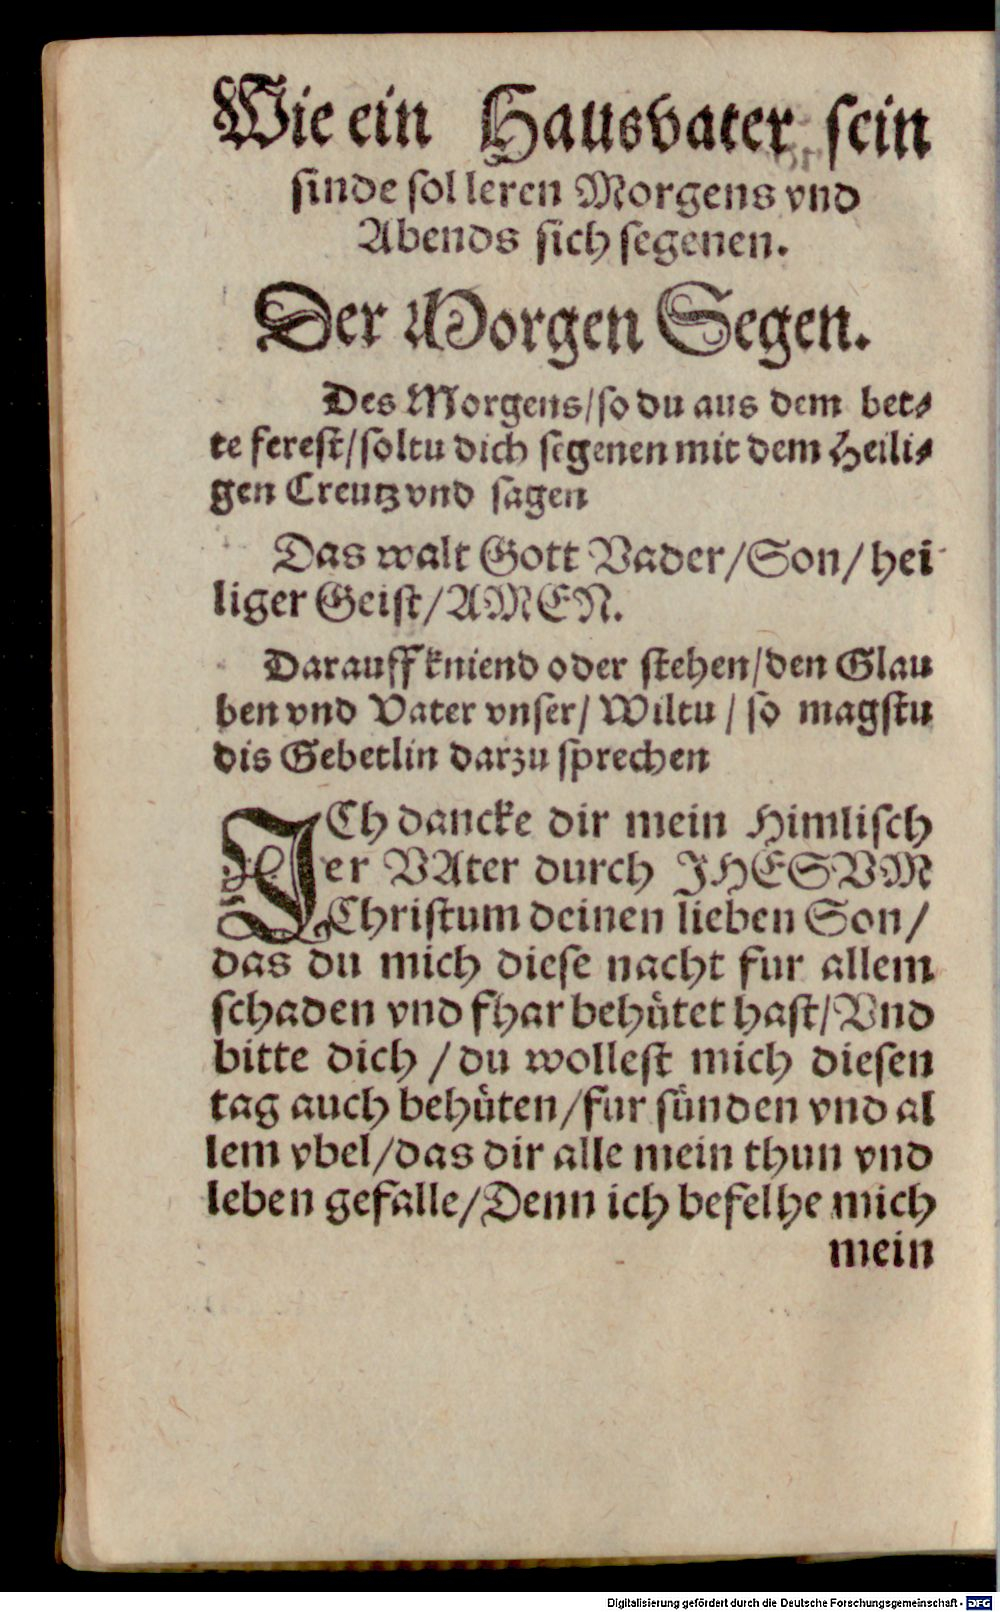 Wie ein Hausvater sein
sinde sol leren Morgens vnd
Abends sich segenen.
Der Morgen Segen.
Des Morgens/so du aus dem bet⸗
te ferest/soltu dich segenen mit dem Heili⸗
gen Creutz vnd sagen
Das walt Gott Vader/Son/hei
liger Geist/AMEN.
Darauff kniend oder stehen/den Glau
ben vnd Vater vnser/Wiltu/so magstu
dis Gebetlin darzu sprechen
ICh dancke dir mein Himlisch
er VAter durch JHESVM
Christum deinen lieben Son/
das du mich diese nacht fur allem
schaden vnd fhar behütet hast/Vnd
bitte dich/du wollest mich diesen
tag auch behüten/fur sünden vnd al
lem vbel/das dir alle mein thun vnd
leben gefalle/Denn ich befelhe mich
mein
Digitalisierung gefördert durch die Deutsche Forschungsgemeinschaft - DFG